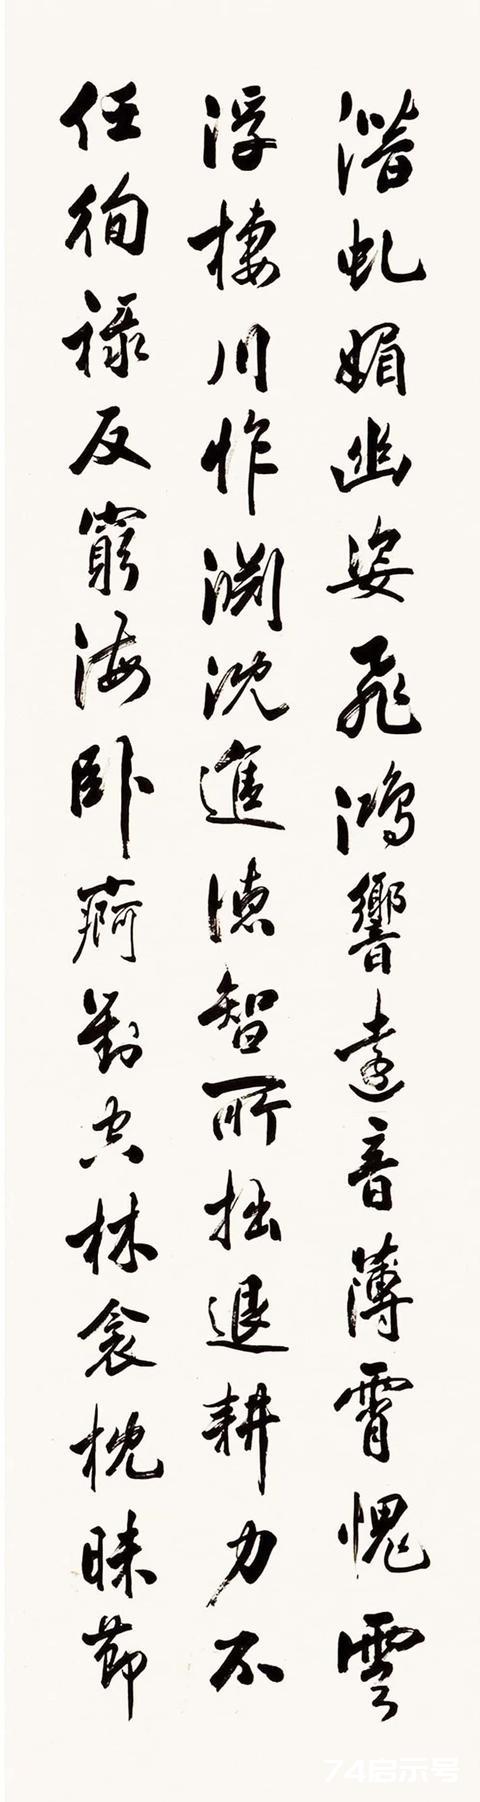 潛虬媚幽姿飛鴻響遠音薄霄愧雲
浮棲川怍淵沈進德智所拙退耕力不
任徇祿反窮海臥痾對空林衾枕昧節
74启示号